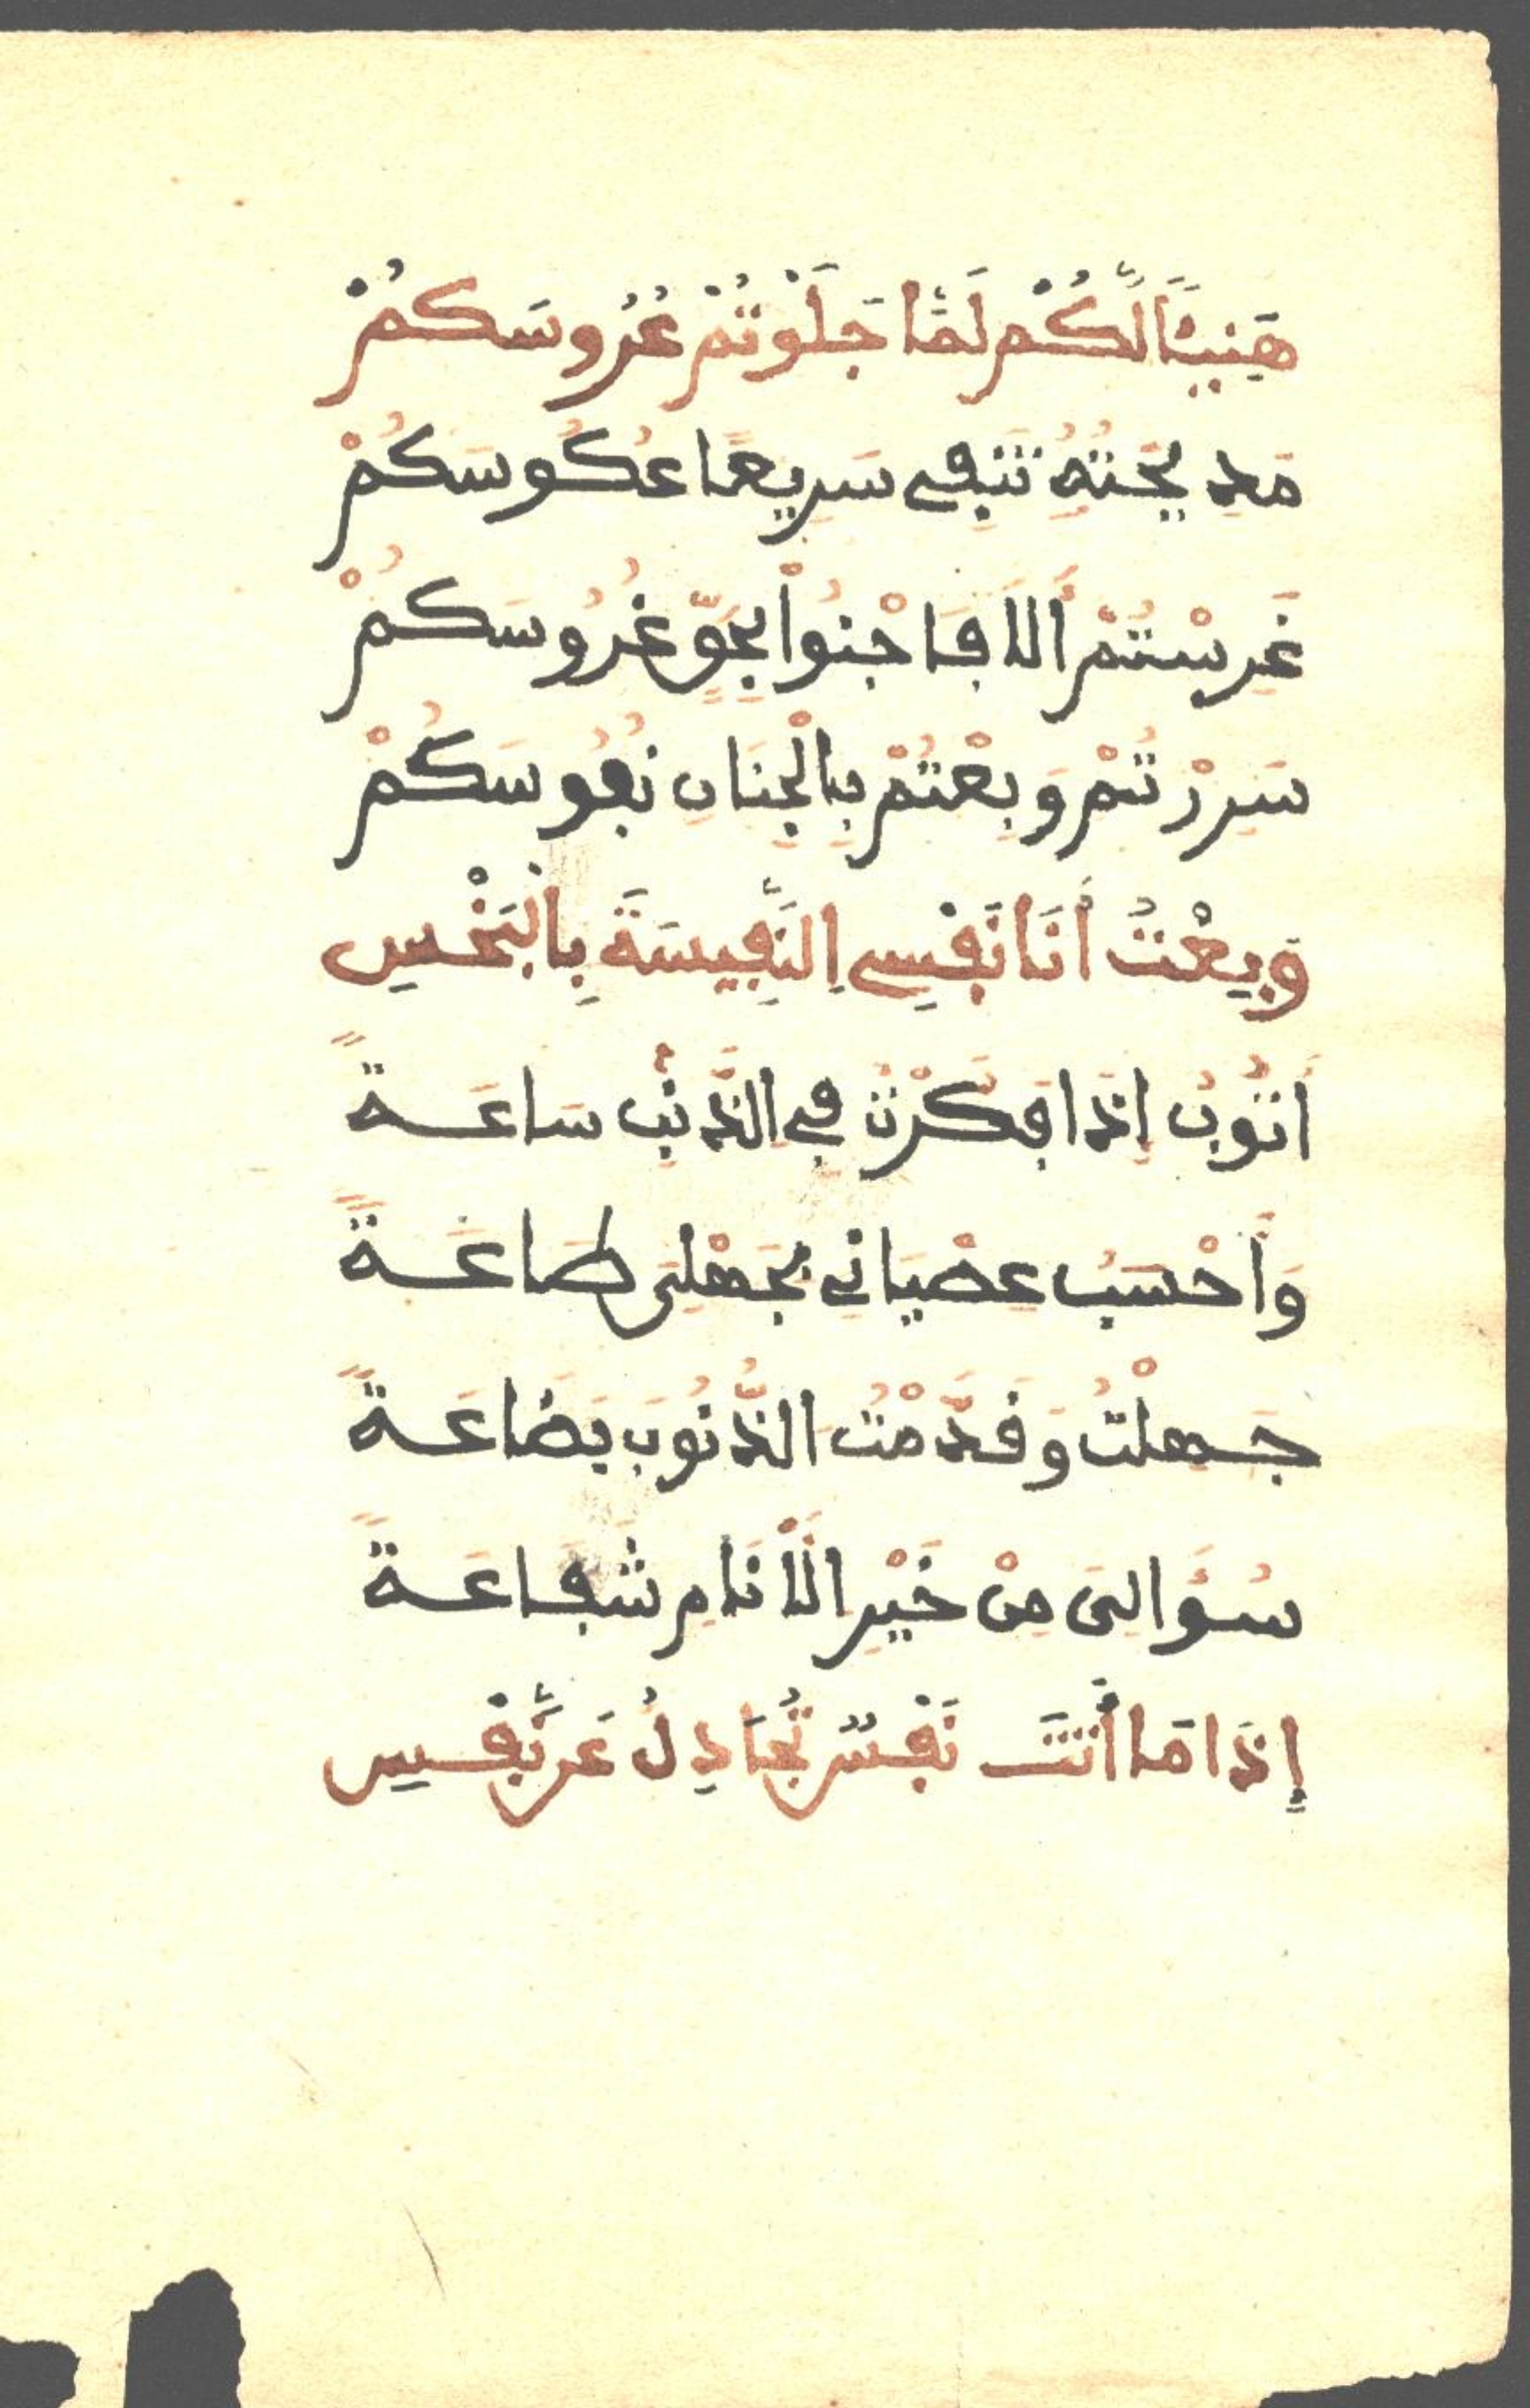 هَنِيـًٔا لَّكُمْ لَمَّا جَلَوْتُمْ عُرُوسَكُمْ
مَدِيحَتُهُ تَنفِى سَرِيعًا عُكُوسَكُمْ
غَرِسْتُمْ أَلَا فَاجْنُواْ بِجَوٍّ غُرُوسَكُمْ
سَرِرْتُمْ وَبِعْتُمْ بِالْجِنَانِ نُفُوسَكُمْ
وَبِعْتُ أَنَا نَفْسِى اِلنَّفِيسَةَ بِالْبَخْسِ
أَتُوبُ إِذَا فَكَرْتُ فِى الذَّنْبِ سَاعَةً
وَأَحْسَبُ عِصْيَانِى بِجَهْلِى طَاعَةً
جَهِلْتُ وَقَدَّمْتُ الذُّنُوبَ بِضَاعَةً
سُؤَالِىَ مِنْ خَيْرِ الْأَنَامِ شَفَاعَةً
إِذَا مَا أَتَتْ نَفْسٌ تُجَادِلُ عَن نَّفْسِ